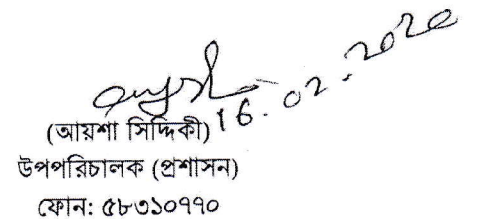 16.02.2020
(আয়শা সিদ্দিকী)
উপপরিচালক (প্রশাসন)
ফোন: ৫৮৩১০৭৭০